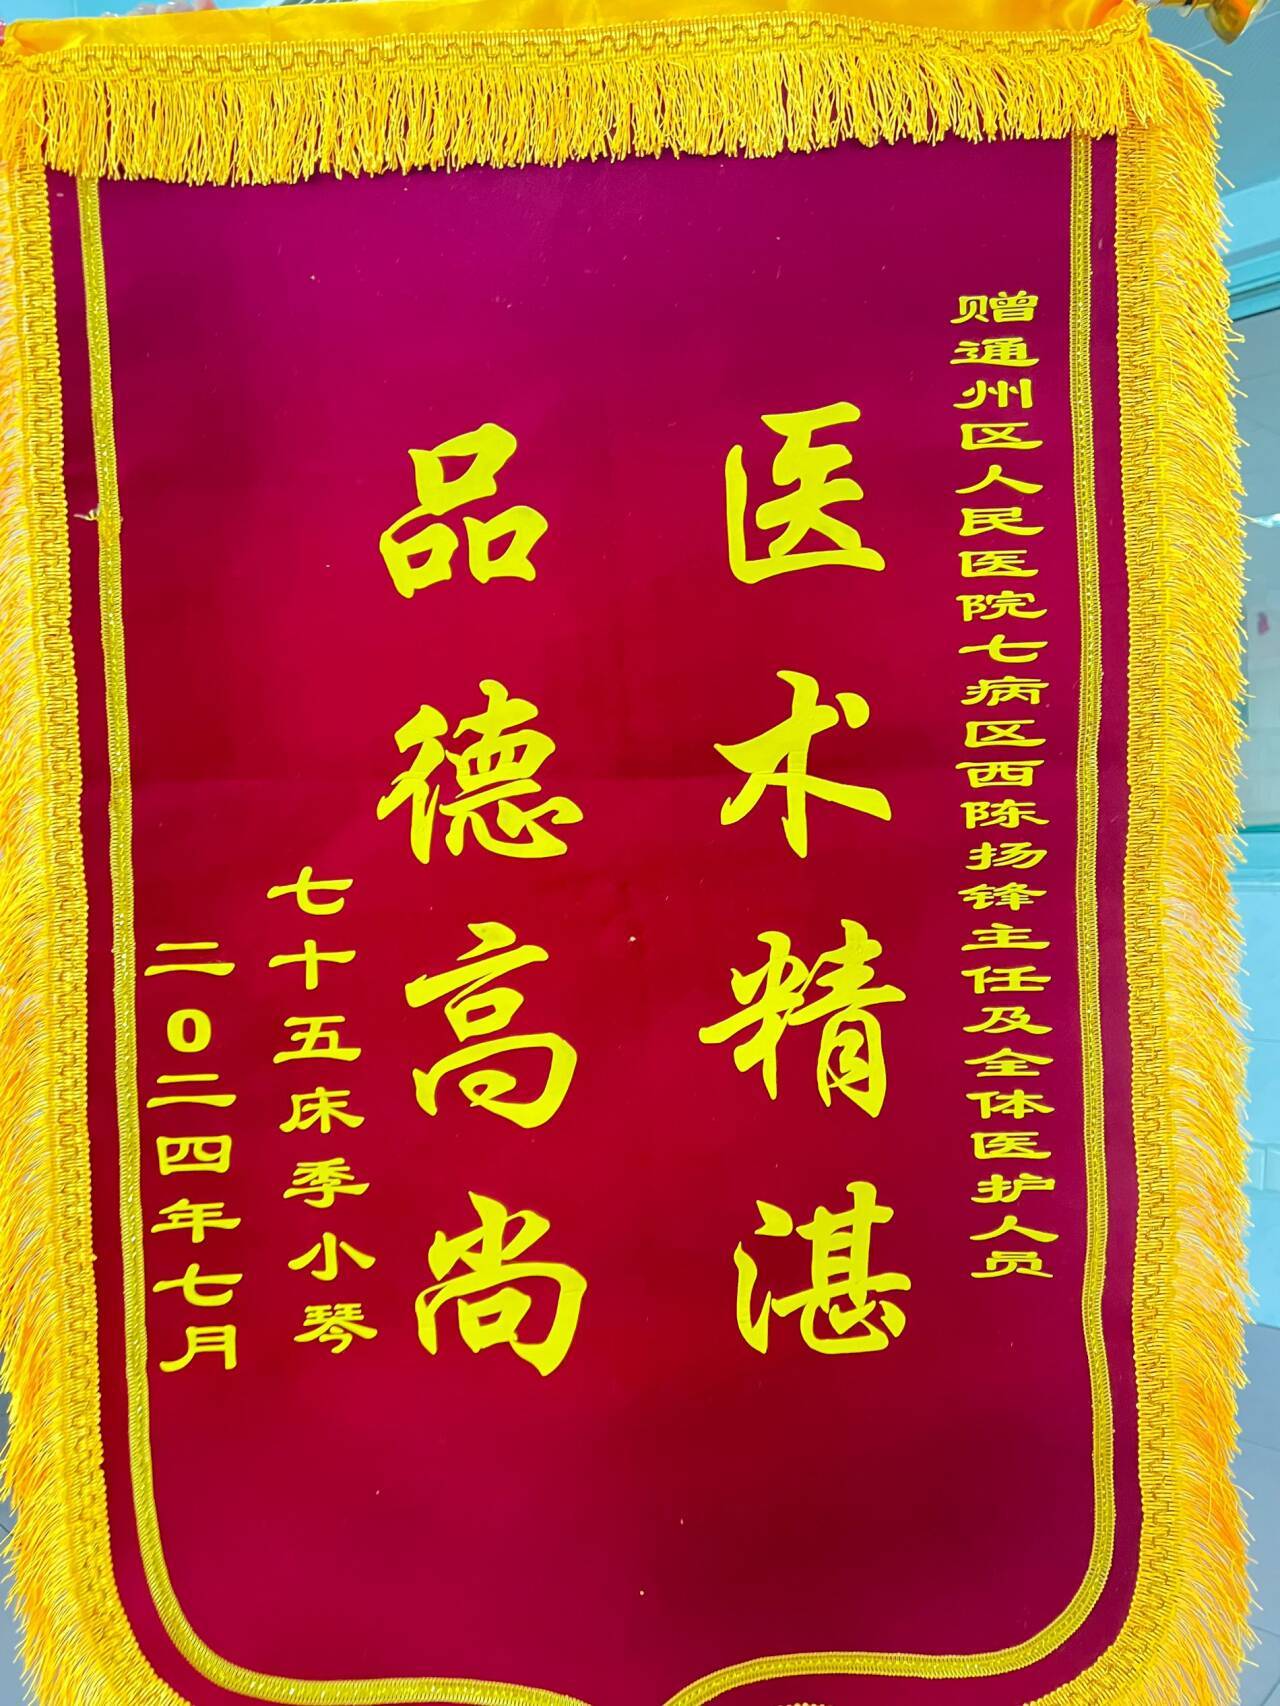 赠通州区人民医院七病区西陈扬锋主任及全体医护人员
医术精湛
品德高尚
七十五床季小琴
二0二四年七月